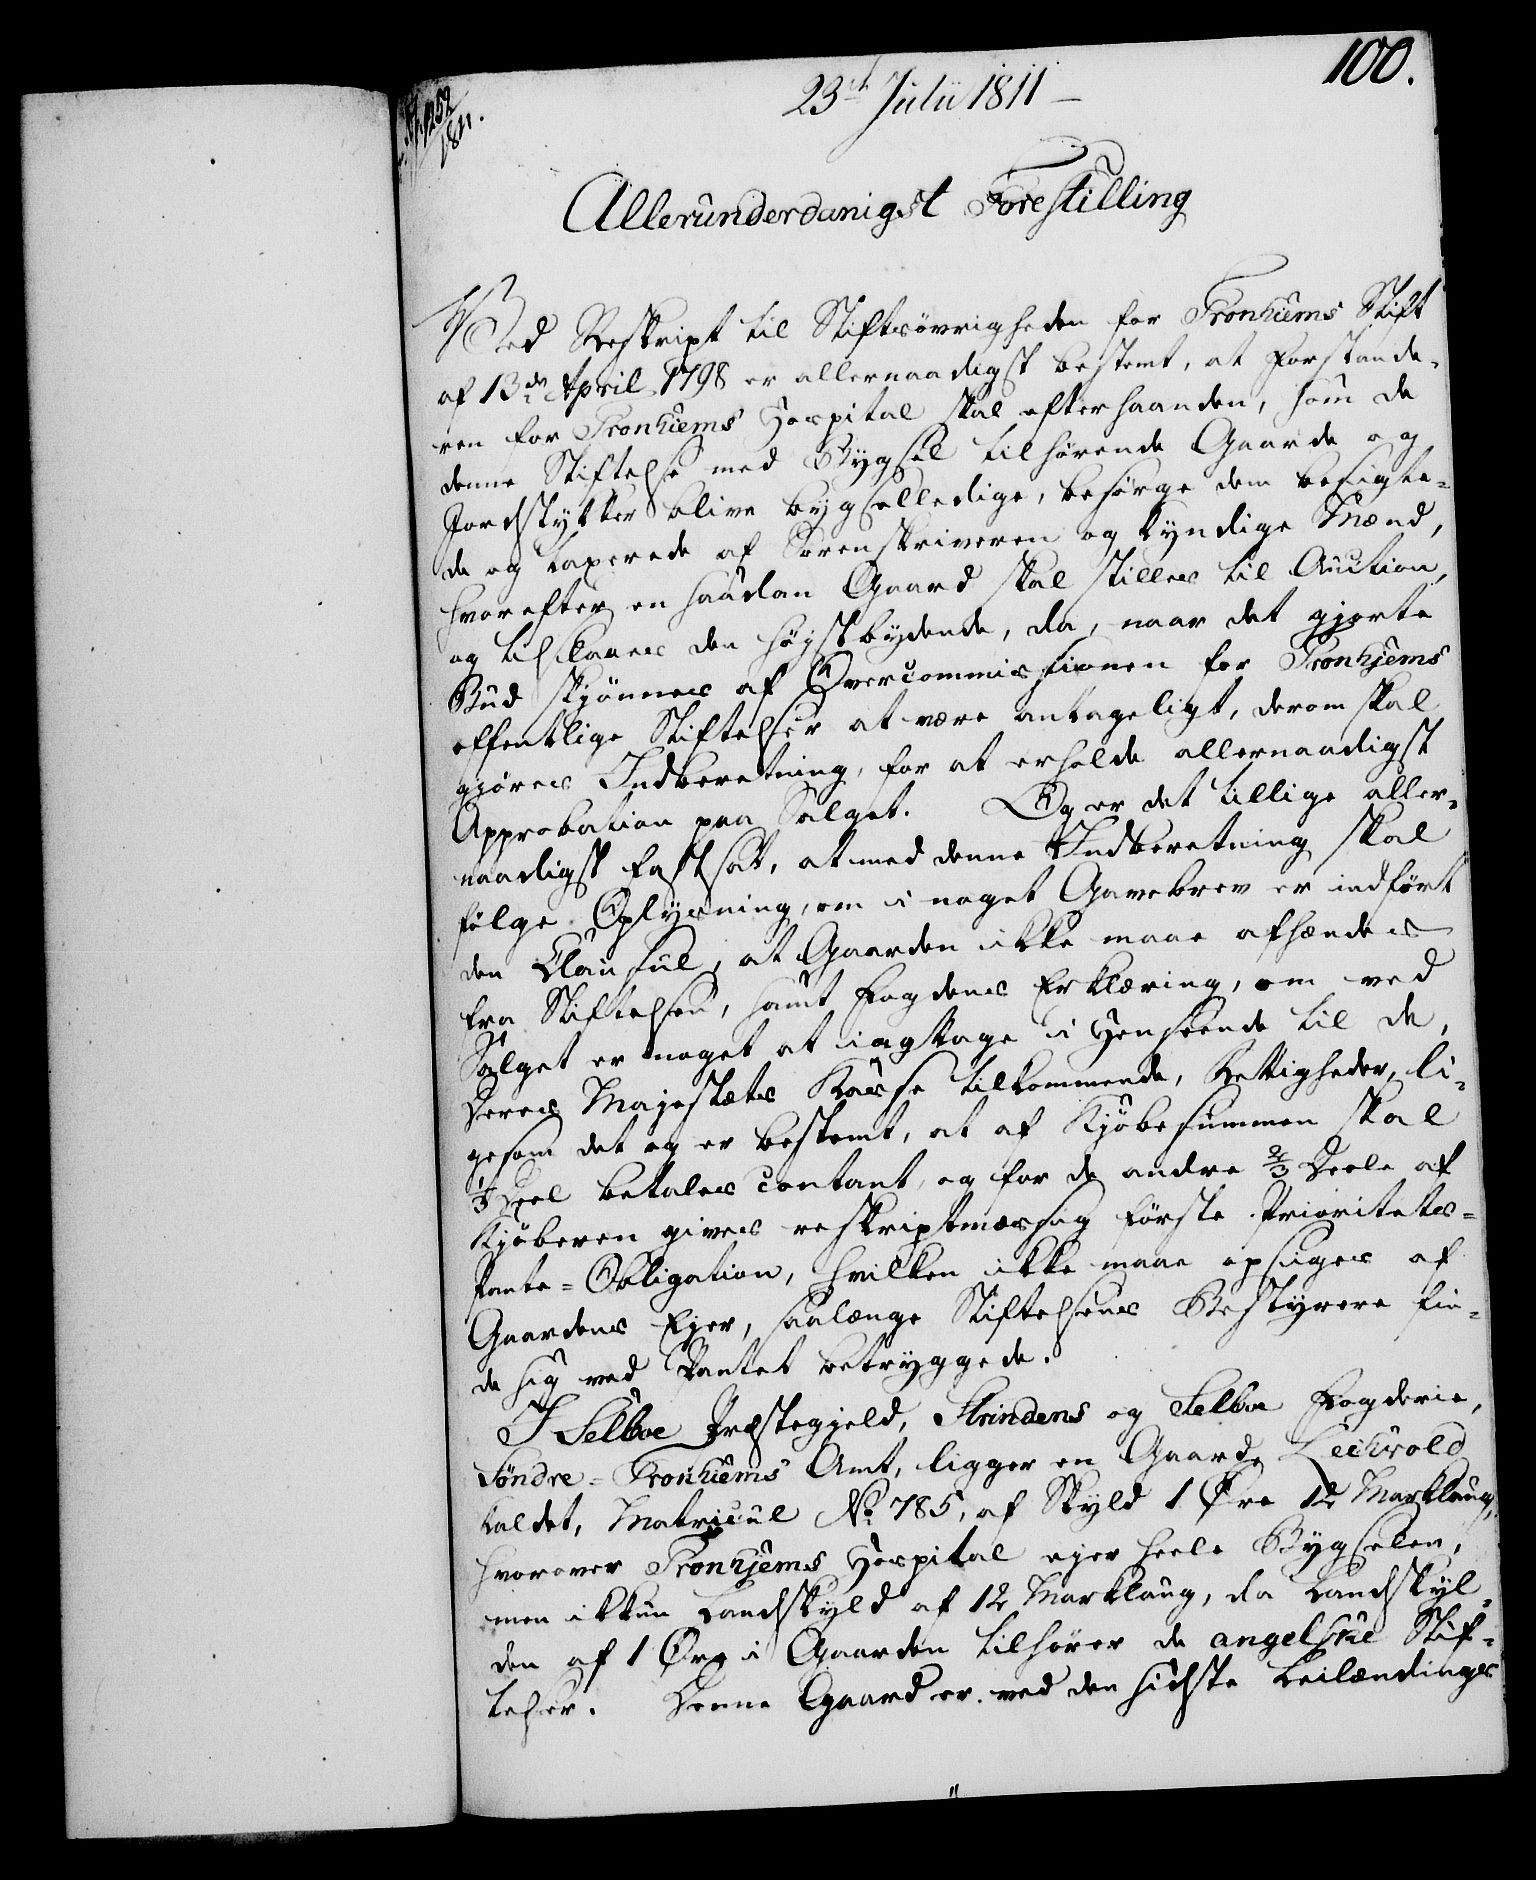 100.
23de Julii 1811 –
1252
1811.
Allerunderdanigst Forestilling
Ved Reskript til Stiftsövrigheden for Tronhiems Stift
af 13de April 1798 er allernaadigst bestemt, at Forstande-
ren for Tronhiems Hospital skal efterhaanden, som de
denne Stiftelse med Bygsel tilhörende Gaarde og
Jordstykker blive bygselledige, besörge dem besigte-
de og taxerede af Sorenskriveren og kyndige Mænd,
hvorefter en saadan Gaard skal stilles til Auction,
og tilslaaes den höystbydende, da, naar det gjorte
Bud skjönnes af Overcommissionen for Tronhjems
offentlige Stiftelser at være antageligt, derom skal
gjöres Indberetning, for at erholde allernaadigst
Approbation paa Salget. Og er det tillige aller-
naadigst fastsat, at med denne Indberetning skal
fölge Oplysning, om i noget Gavebrev er indfört
den Clausul, at Gaarden ikke maae afhændes
fra Stiftelsen, samt Fogdens Erklæring, om ved
Salget er noget at iagttage i Henseende til de,
Deres Majestæts Kasse tilkommende, Rettigheder, li-
gesom det og er bestemt, at af Kjöbesummen skal
1/3 Deel betales contant, og for de andre 2/3 Deele af
Kjöberen gives reskriptmæssig förste Prioritets-
Pante-Obligation, hvilken ikke maae opsiges af
Gaardens Ejer, saalænge Stiftelsens Bestyrere fin-
de sig ved Pantet betryggede.
I Selboe Præstegjeld, Strindens og Selboe Fogderie,
Söndre-Tronhiems Amt, ligger en Gaard, Leehvold
kaldet, Matricul No 785, af Skyld 1 Øre 12 Marklaug,
hvorover Tronhjems Hospital ejer heele Bygselen,
men ikkun Landskyld af 12 Marklaug, da Landskyl-
den af 1 Øre i Gaarden tilhører de angelske Stif-
telser. Denne Gaard er ved den sidste Leilændings